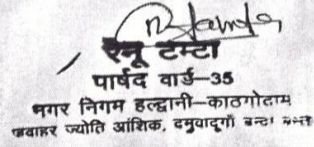 रेनू टम्टा
पार्षद वार्ड–35
नगर निगम हल्द्वानी–काठगोदाम
जवाहर ज्योति आंशिक, दमुवाढूँगा